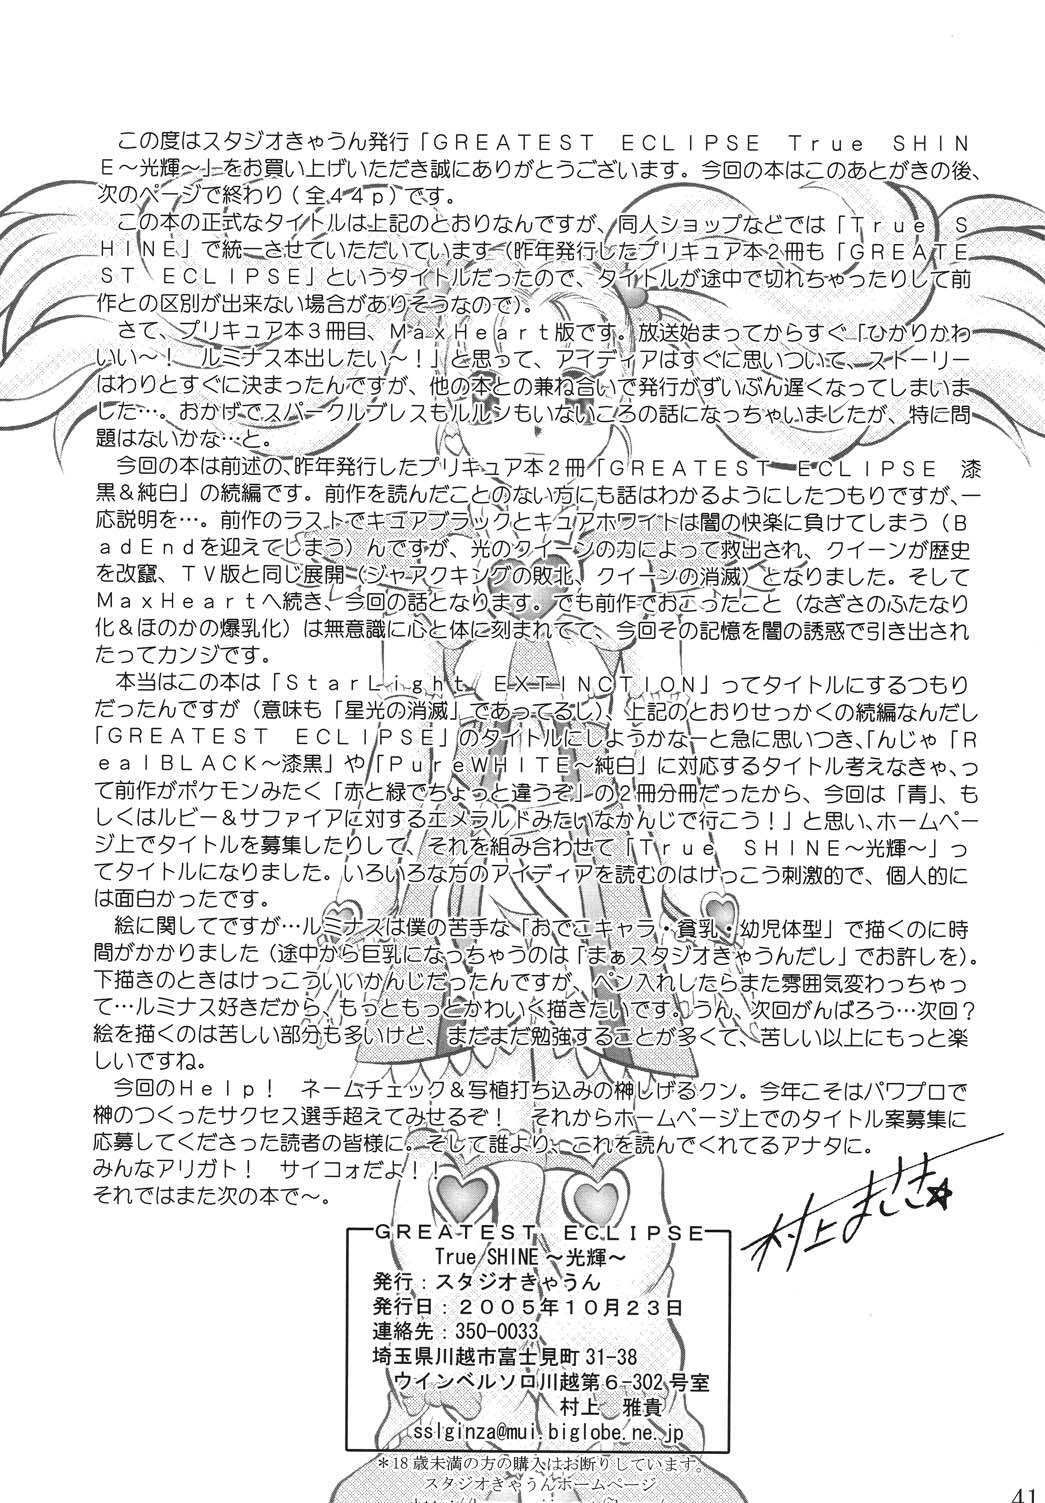 この度はスタジオきゃうん発行「ＧＲＥＡＴＥＳＴ　ＥＣＬＩＰＳＥ　Ｔｒｕｅ　ＳＨＩＮ
Ｅ～光輝～」をお買い上げいただき誠にありがとうございます。今回の本はこのあとがきの後、
次のページで終わり（全４４ｐ）です。
この本の正式なタイトルは上記のとおりなんですが、同人ショップなどでは「Ｔｒｕｅ　Ｓ
ＨＩＮＥ」で統一させていただいています（昨年発行したプリキュア本２冊も「ＧＲＥＡＴＥ
ＳＴ　ＥＣＬＩＰＳＥ」というタイトルだったので、タイトルが途中で切れちゃったりして前
作との区別が出来ない場合がありそうなので）。
さて、プリキュア本３冊目、ＭａｘＨｅａｒｔ版です。放送始まってからすぐ「ひかりかわ
いい～！　ルミナス本出したい～！」と思って、アイディアはすぐに思いついて、ストーリー
はわりとすぐに決まったんですが、他の本との兼ね合いで発行がずいぶん遅くなってしまいま
した…。おかげでスパークルブレスもルルンもいないころの話になっちゃいましたが、特に問
題はないかな…と。
今回の本は前述の、昨年発行したプリキュア本２冊「ＧＲＥＡＴＥＳＴ　ＥＣＬＩＰＳＥ　漆
黒＆純白」の続編です。前作を読んだことのない方にも話はわかるようにしたつもりですが、一
応説明を…。前作のラストでキュアブラックとキュアホワイトは闇の快楽に負けてしまう（Ｂ
ａｄＥｎｄを迎えてしまう）んですが、光のクイーンの力によって救出され、クイーンが歴史
を改竄、ＴＶ版と同じ展開（ジャアクキングの敗北、クイーンの消滅）となりました。そして
ＭａｘＨｅａｒｔへ続き、今回の話となります。でも前作でおこったこと（なぎさのふたなり
化＆ほのかの爆乳化）は無意識に心と体に刻まれてて、今回その記憶を闇の誘惑で引き出され
たってカンジです。
本当はこの本は「ＳｔａｒＬｉｇｈｔ　ＥＸＴＩＮＣＴＩＯＮ」ってタイトルにするつもり
だったんですが（意味も「星光の消滅」であってるし）、上記のとおりせっかくの続編なんだし
「ＧＲＥＡＴＥＳＴ　ＥＣＬＩＰＳＥ」のタイトルにしようかなーと急に思いつき、「んじゃ「Ｒ
ｅａｌＢＬＡＣＫ～漆黒」や「ＰｕｒｅＷＨＩＴＥ～純白」に対応するタイトル考えなきゃ、っ
て前作がポケモンみたく「赤と緑でちょっと違うぞ」の２冊分冊だったから、今回は「青」、も
しくはルビー＆サファイアに対するエメラルドみたいなかんじで行こう！」と思い、ホームペー
ジ上でタイトルを募集したりして、それを組み合わせて「Ｔｒｕｅ　ＳＨＩＮＥ～光輝～」っ
てタイトルになりました。いろいろな方のアイディアを読むのはけっこう刺激的で、個人的に
は面白かったです。
絵に関してですが…ルミナスは僕の苦手な「おでこキャラ・貧乳・幼児体型」で描くのに時
間がかかりました（途中から巨乳になっちゃうのは「まぁスタジオきゃうんだし」でお許しを）。
下描きのときはけっこういいかんじだったんですが、ペン入れしたらまた雰囲気変わっちゃっ
て…ルミナス好きだから、もっともっとかわいく描きたいです。うん、次回がんばろう…次回？
絵を描くのは苦しい部分も多いけど、まだまだ勉強することが多くて、苦しい以上にもっと楽
しいですね。
今回のＨｅｌｐ！　ネームチェック＆写植打ち込みの榊しげるクン。今年こそはパワプロで
榊のつくったサクセス選手超えてみせるぞ！　それからホームページ上でのタイトル案募集に
応募してくださった読者の皆様に。そして誰より、これを読んでくれてるアナタに。
みんなアリガト！　サイコォだよ！！
それではまた次の本で～。
村上まさき☆
ＧＲＥＡＴＥＳＴ　ＥＣＬＩＰＳＥ
True SHINE～光輝～
発行：スタジオきゃうん
発行日：２００５年１０月２３日
連絡先：350-0033
埼玉県川越市富士見町 31-38
ウインベルソロ川越第６-302 号室
村上　雅貴
sslginza@mui.biglobe.ne.jp
＊18 歳未満の方の購入はお断りしています。
スタジオきゃうんホームページ
41